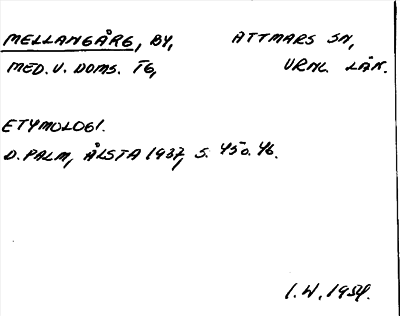 MELLANGÅRG, BY, ATTMARS SN,
MED. V. DOMS. TG, VRNL. LÄN.
ETYMOLOGI.
D. PALM, ÅLSTA 1937, S. 45 o. 46.
I. W. 1954.